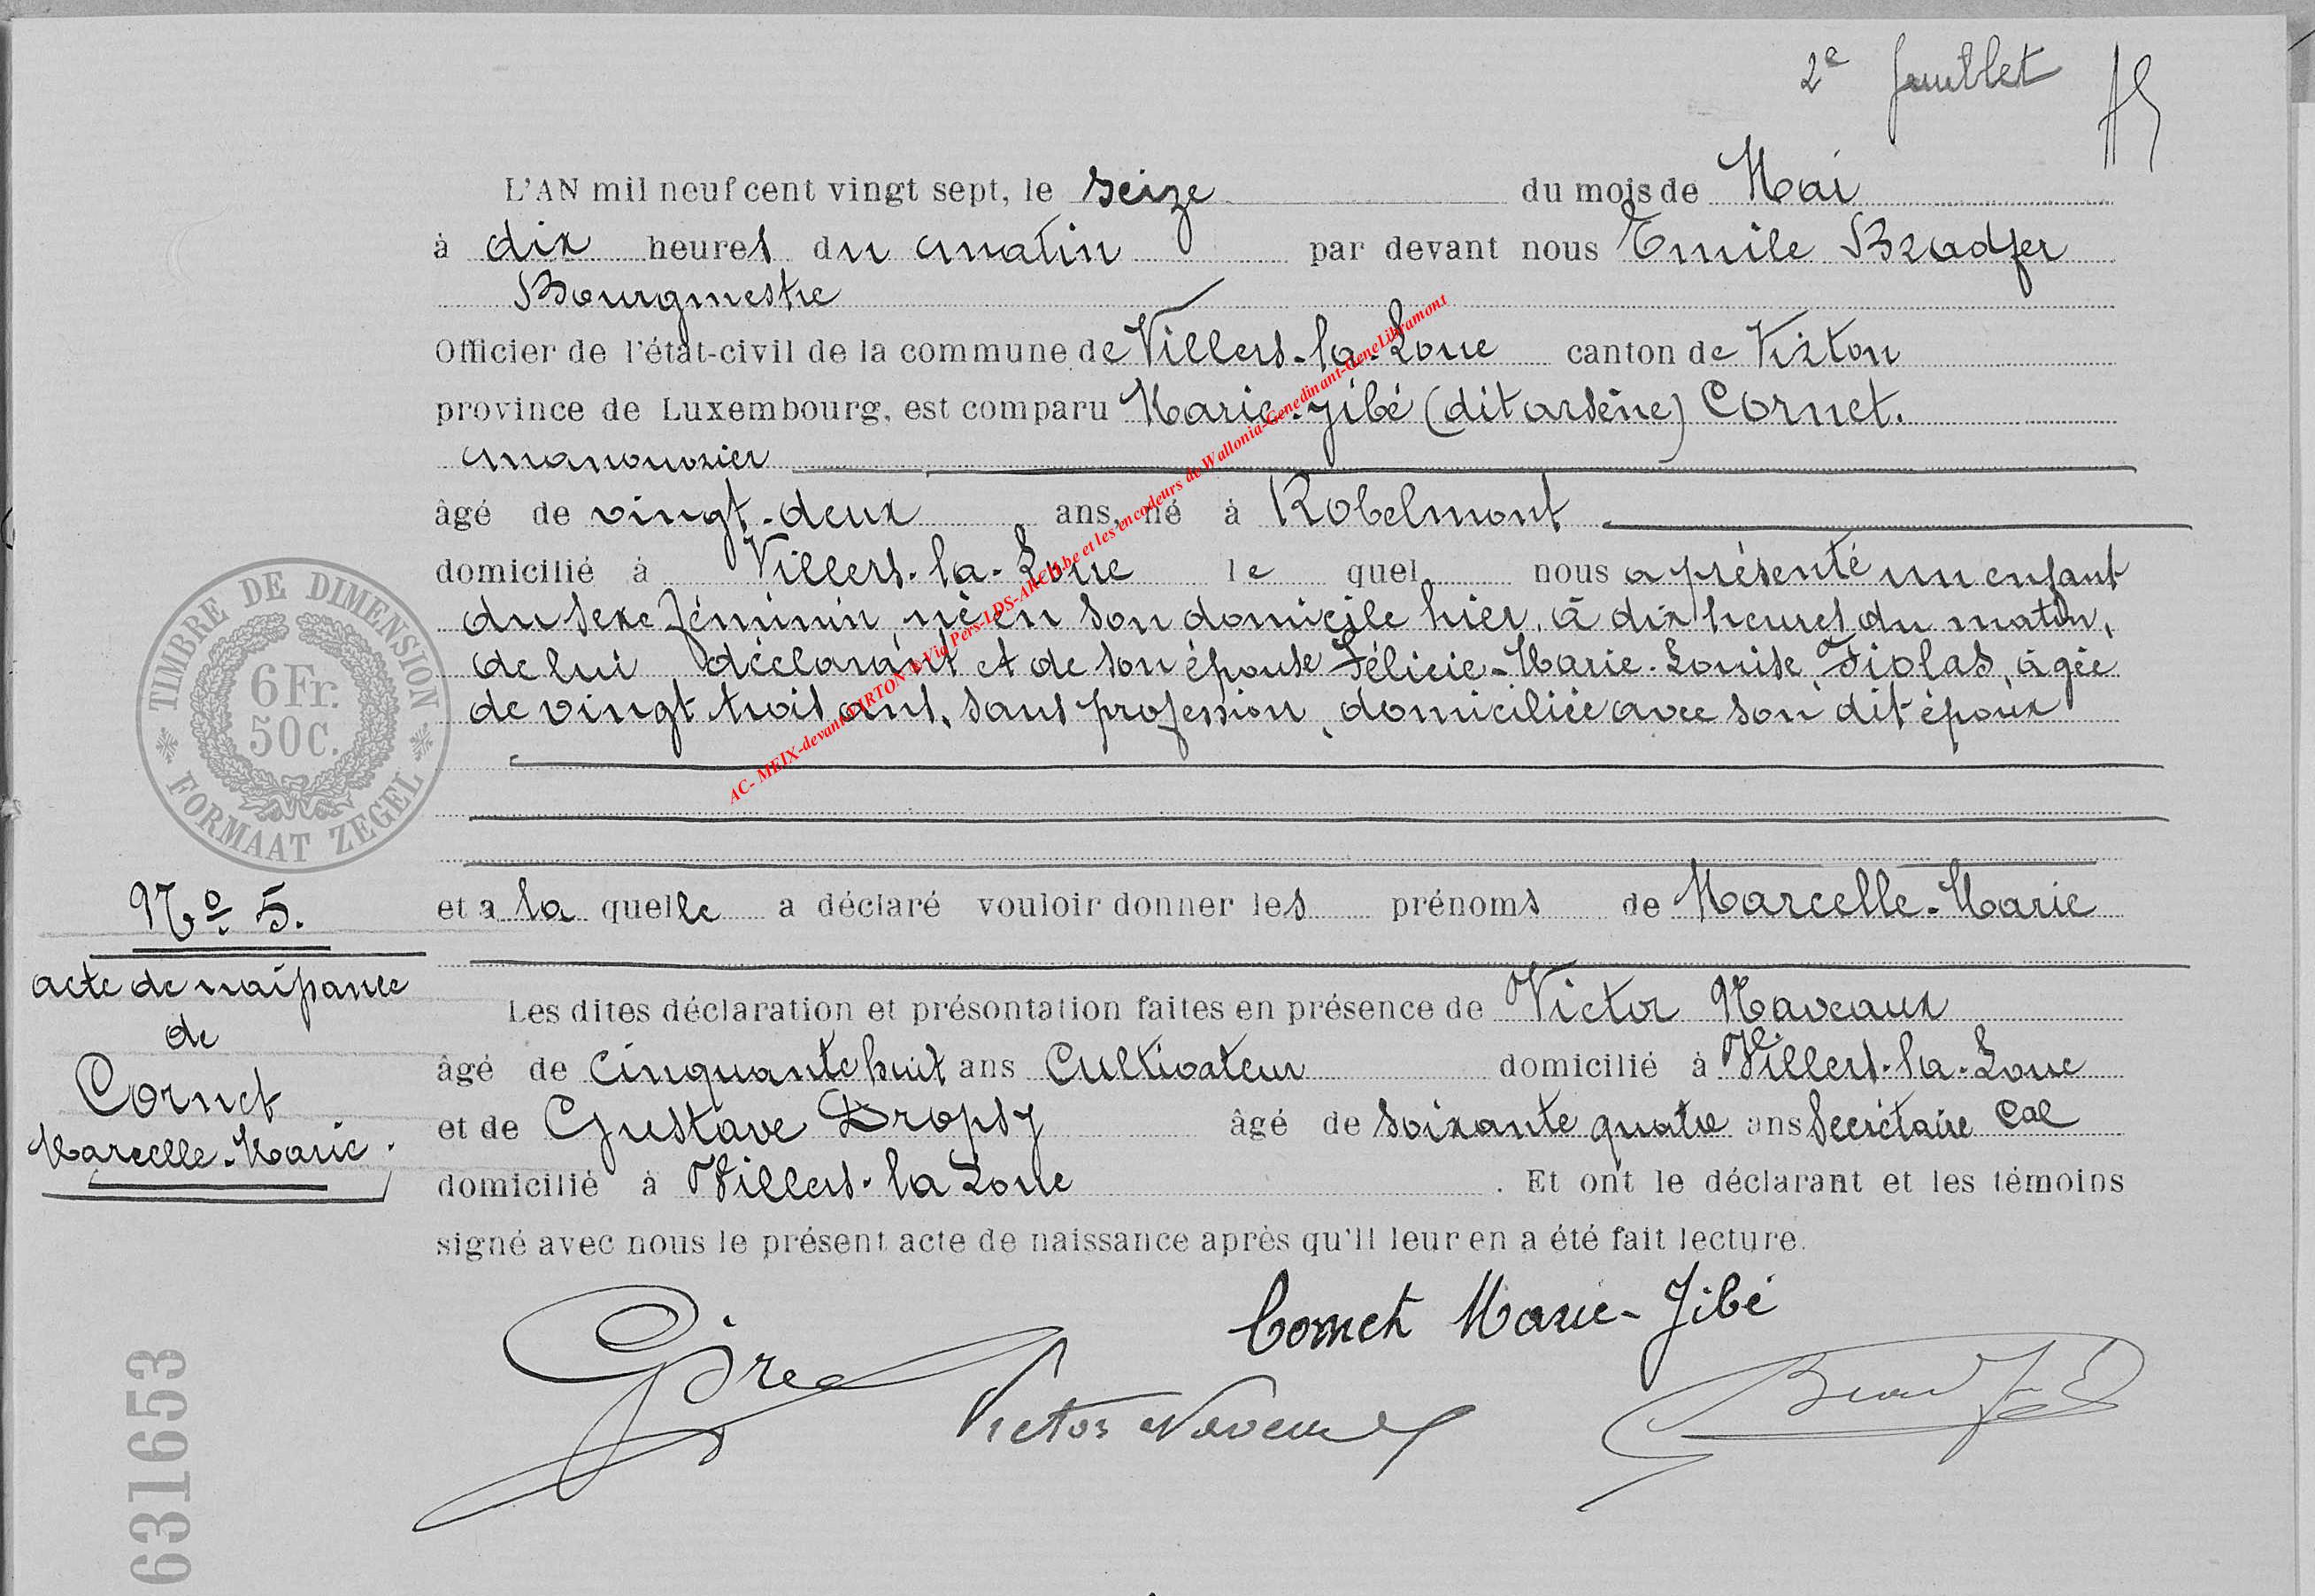 2e feuillet
L'AN mil neuf cent vingt sept, le seize du mois de Mai
à dix heures du matin par devant nous Emile Bradfer
Bourgmestre
Officier de l'état-civil de la commune de Villers-la-Loue canton de Virton
province de Luxembourg, est comparu Marie-Jibé (dit arsène) Cornet.
manouvrier
âgé de vingt-deux ans, né à Robelmont
domicilié à Villers-la-Loue le quel nous a présenté un enfant
du sexe féminin, né en son domicile hier, à dix heures du matin,
de lui déclarant et de son épouse Félicie-Marie-Louise Fiolas, âgée
de vingt trois ans, sans profession, domiciliée avec son dit époux
TIMBRE DE DIMENSION
6 Fr.
50 C.
FORMAAT ZEGEL
et a la quelle a déclaré vouloir donner les prénoms de Marcelle-Marie
Les dites déclaration et présentation faites en présence de Victor Naveaux
âgé de cinquante huit ans Cultivateur domicilié à Villers-la-Loue
et de Gustave Dropsy âgé de soixante quatre ans Secrétaire Cal
domicilié à Villers-la Loue . Et ont le déclarant et les témoins
signé avec nous le présent acte de naissance après qu'il leur en a été fait lecture.
No 5.
acte de naissance
de
Cornet
Marcelle-Marie.
Cornet Marie-Jibé
Victor Naveaux
631653
AC- MEIX-devant-VIRTON & Via Pers-LDS-ARCH.be et les encodeurs de Wallonia-Genedinant-GeneLibramont